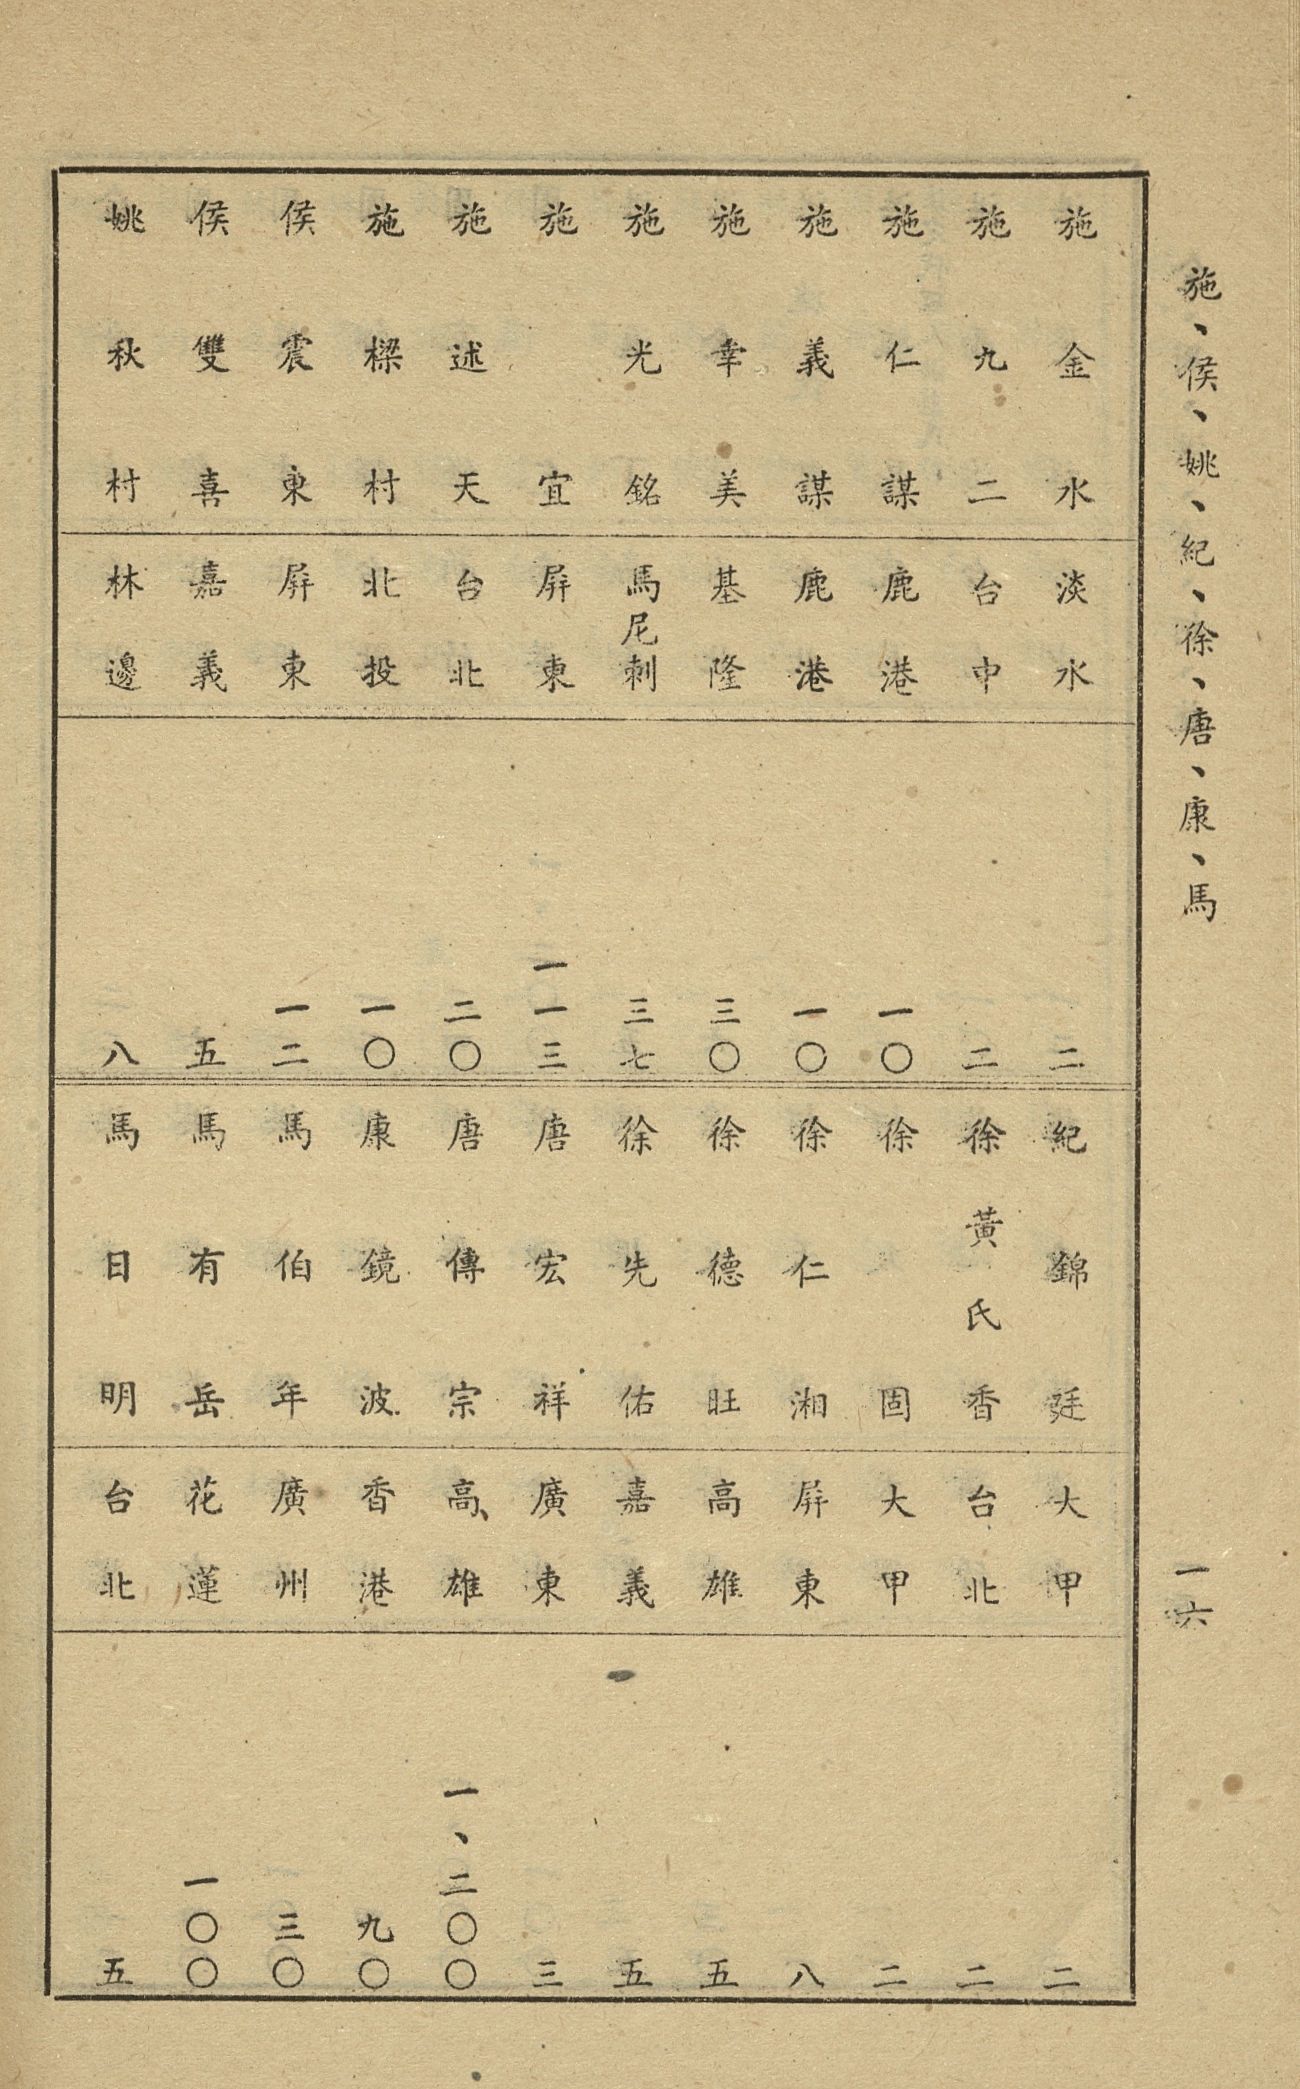 施、侯、姚、紀、徐、唐、康、馬
一六
施金水 淡水 二
施九二 台中 二
施仁謀 鹿港 一〇
施義謀 鹿港 一〇
施幸美 基隆 三〇
施光銘 馬尼剌 三七
施宜 屏東 一一三
施述天 台北 二〇
施樑村 北投 一〇
侯震東 屏東 一二
侯雙喜 嘉義 五
姚秋村 林邊 八
紀錦廷 大甲 二
徐黃氏香 台北 二
徐固 大甲 二
徐仁湘 屏東 八
徐德旺 高雄 五
徐先佑 嘉義 五
唐宏祥 廣東 三
唐傳宗 高雄 一、二〇〇
康鏡波 香港 九〇
馬伯年 廣州 三〇
馬有岳 花蓮 一〇〇
馬日明 台北 五